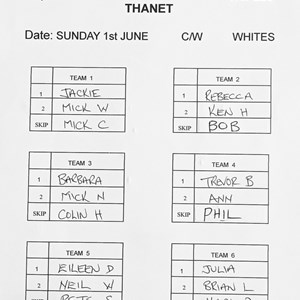 THANET
Date: SUNDAY 1st JUNE C/W WHITES
TEAM 1
1 JACKIE
2 MICK W
SKIP MICK C
TEAM 2
1 REBECCA
2 KEN H
SKIP BOB
TEAM 3
1 BARBARA
2 MICK N
SKIP COLIN H
TEAM 4
1 TREVOR B
2 ANN
SKIP PHIL
TEAM 5
1 EILEEN D
2 NEIL W
TEAM 6
1 JULIA
2 BRIAN L